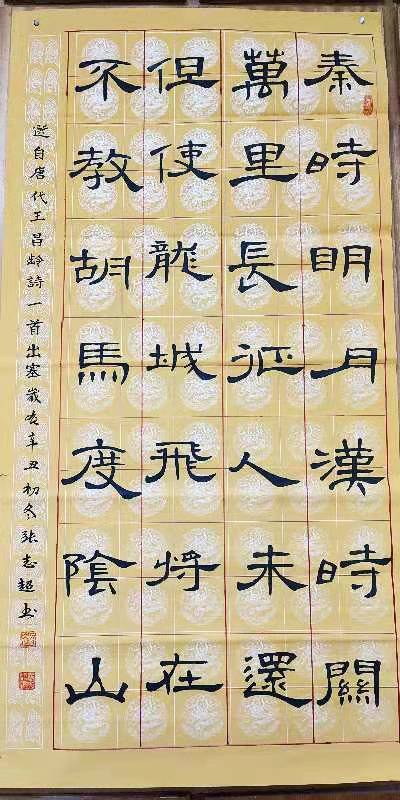 秦時明月漢時關
萬里長征人未還
但使龍城飛将在
不教胡馬度陰山
選自唐代王昌龄詩一首出塞歲在辛丑初冬張志超书